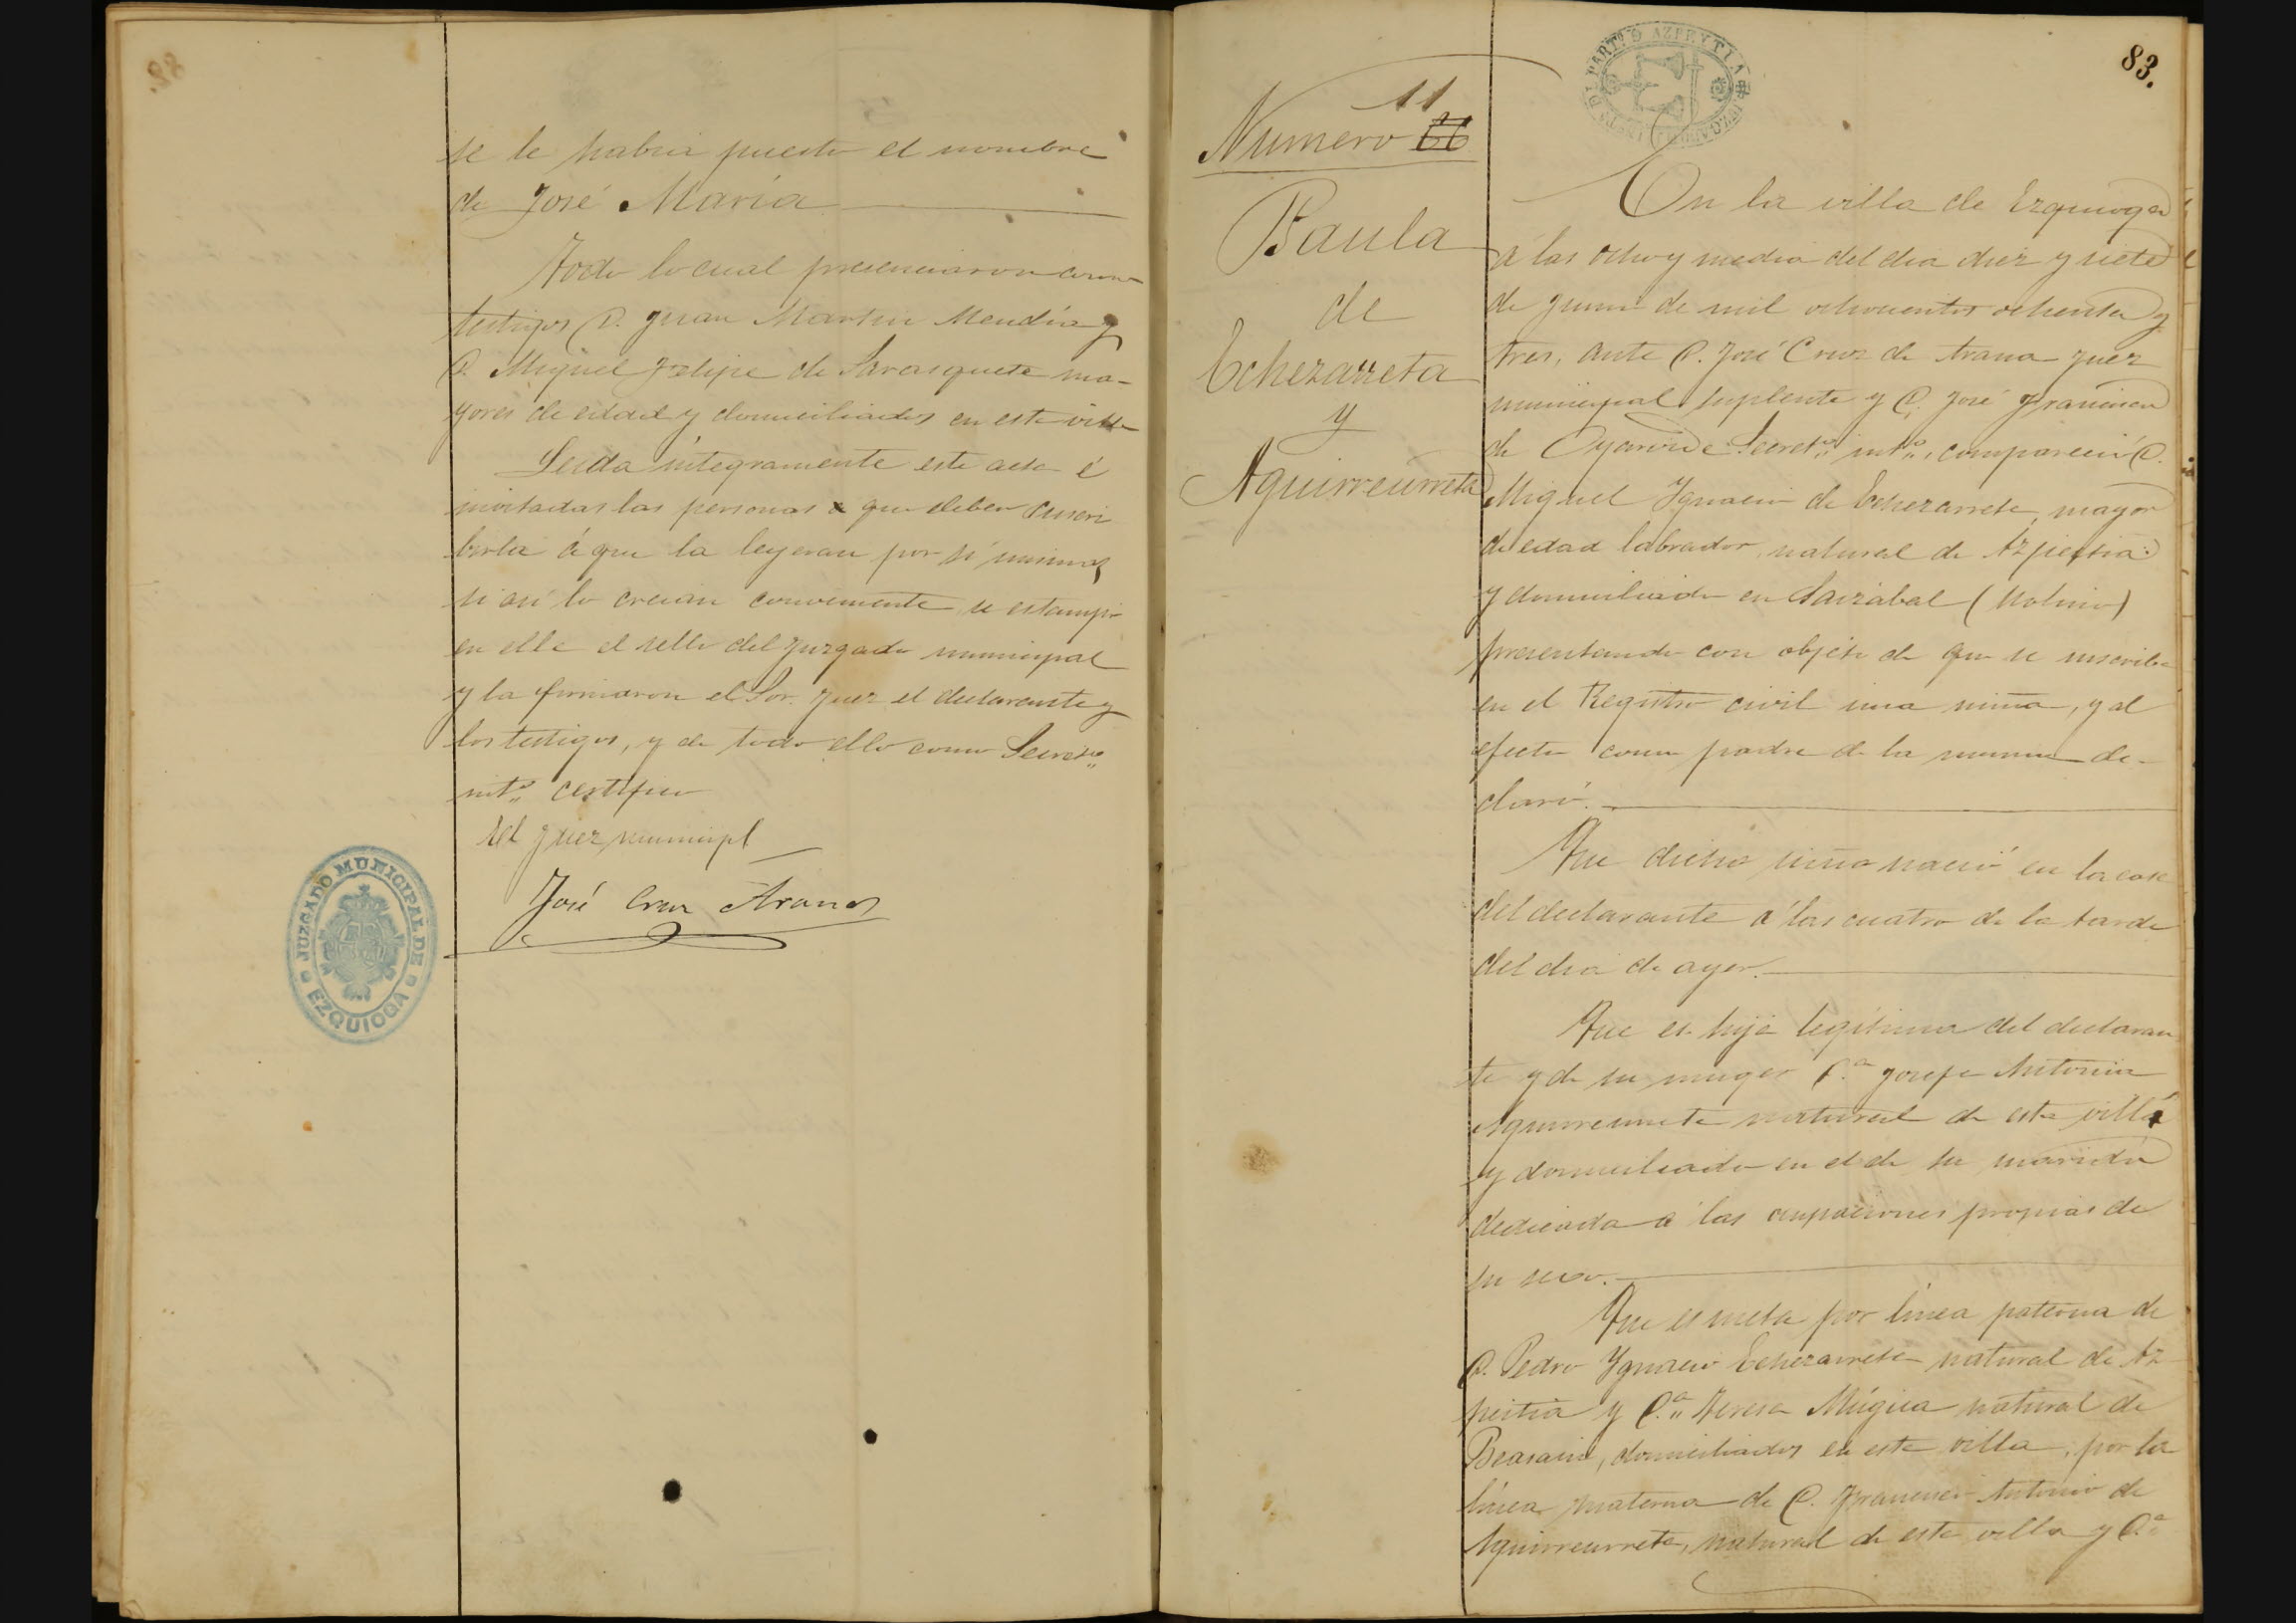 se le habia puesto el nombre
de José Maria
Todo lo cual presenciaron como
testigos D. Juan Martin Mendía y
D. Miguel Felipe de Sarasqueta ma-
yores de edad y domiciliados en esta villa
Leida integramente este acta é
invitadas las personas que deben suscri
birla á que la leyeran por si mismas
si asi lo creian conveniente se estampó
en ella el sello del juzgado municipal
y la firmaron el Sor. Juez el declarante y
los testigos, y de todo ello como Secretº
intº certifico
El Juez municipl
José Cruz Arana
JUZGADO MUNICIPAL DE EZQUIOGA
83.
PARTº D AZPEYTIA
11
Numero 66
Paula
de
Echezarreta
y
Aguirreurreta
En la villa de Ezquioga
á las ocho y media del dia diez y siete
de Junio de mil ochocientos ochenta y
tres, ante D. José Cruz de Arana Juez
municipal suplente y D. José Francisco
de Oyarvide Secretº intº, compareció D.
Miguel Ygnacio de Echezarreta, mayor
de edad labrador natural de Azpeitia
y domiciliado en Sarzabal (Molino)
presentando con objeto de que se inscriba
en el Registro civil una niña, y al
efecto como padre de la misma de-
claró.
Que dicha niña nació en la casa
del declarante á las cuatro de la tarde
del dia de ayer.
Que es hija legitima del declaran
te y de su muger D.ª Josefa Antonia
Aguirreurreta natural de esta villa
y domiciliada en el de su marido
dedicada á las ocupaciones propias de
su sexo.
Que es nieta por linea paterna de
D. Pedro Ygnacio Echezarreta natural de Az
peitia y D.ª Teresa Múgica natural de
Beasain, domiciliados en esta villa, por la
línea materna de D. Francisco Antonio de
Aguirreurreta, natural de esta villa y D.ª